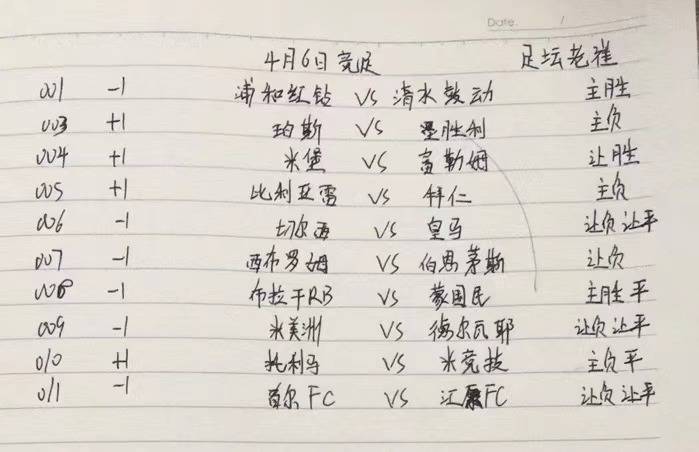 Date. /
4月6日竞足 足坛老雅
001 -1 浦和红钻 VS 清水鼓动 主胜
003 +1 珀斯 VS 墨胜利 主负
004 +1 米堡 VS 富勒姆 让胜
005 +1 比利亚雷 VS 拜仁 主负
006 -1 切尔西 VS 皇马 让负 让平
007 -1 西布罗姆 VS 伯恩茅斯 让负
008 -1 布拉干RB VS 蒙国民 主胜 平
009 -1 米美洲 VS 德尔瓦耶 让负 让平
010 +1 托利马 VS 米竞技 主负 平
011 -1 首尔FC VS 江原FC 让负 让平